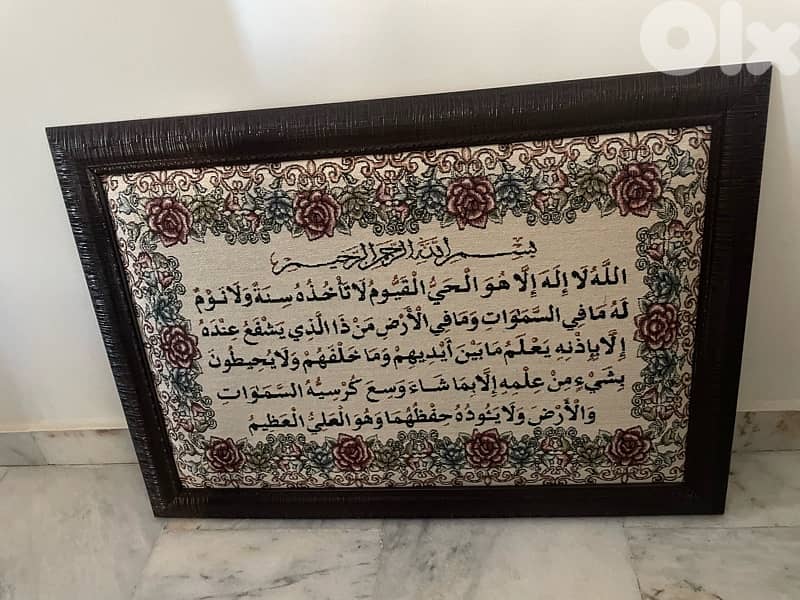 olx
بسم الله الرحمن الرحيم
اللَّهُ لَا إِلَهَ إِلَّا هُوَ الْحَيُّ الْقَيُّومُ لَا تَأْخُذُهُ سِنَةٌ وَلَا نَوْمٌ
لَهُ مَا فِي السَّمَوَاتِ وَمَا فِي الْأَرْضِ مَنْ ذَا الَّذِي يَشْفَعُ عِنْدَهُ
إِلَّا بِإِذْنِهِ يَعْلَمُ مَا بَيْنَ أَيْدِيهِمْ وَمَا خَلْفَهُمْ وَلَا يُحِيطُونَ
بِشَيْءٍ مِنْ عِلْمِهِ إِلَّا بِمَا شَاءَ وَسِعَ كُرْسِيُّهُ السَّمَوَاتِ
وَالْأَرْضَ وَلَا يَئُودُهُ حِفْظُهُمَا وَهُوَ الْعَلِيُّ الْعَظِيمُ